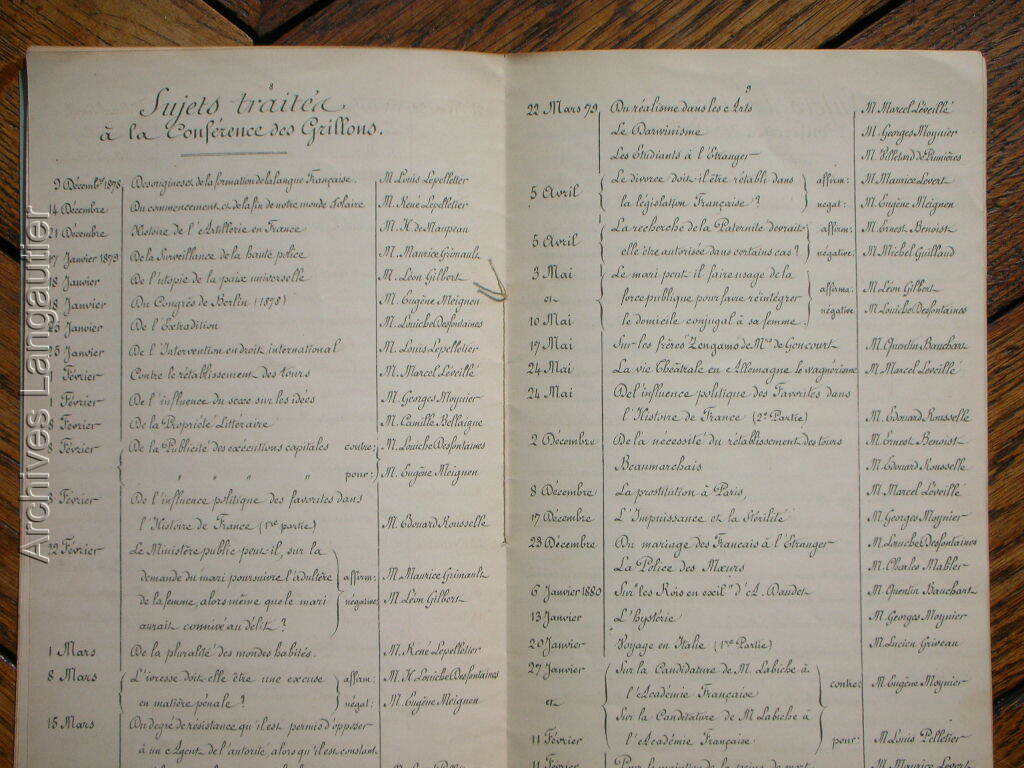 8
Sujets traités
à la Conférence des Grillons.
9 Décembre 1878 Des origines et de la formation de la langue Française. M. Louis Lepelletier
14 Décembre Du commencement et de la fin de notre monde Solaire M. René Lepelletier
21 Décembre Histoire de l'Artillerie en France M. H. de Maupeau
Janvier 1879 De la Surveillance de la haute police M. Maurice Grimault
18 Janvier De l'utopie de la paix universelle M. Léon Gilbert
Janvier Du Congrès de Berlin (1878) M. Eugène Meignen
25 Janvier De l'Extradition M. Louiche Desfontaines
25 Janvier De l'Intervention en droit international M. Louis Lepelletier
Février Contre le rétablissement des tours M. Marcel Léveillé
Février De l'influence du sexe sur les idées M. Georges Moynier
8 Février De la Propriété Littéraire M. Camille Bellaigue
8 Février De la Publicité des exécutions capitales contre: M. Louiche Desfontaines
" " " " pour: M. Eugène Meignen
Février De l'influence politique des favorites dans
l'Histoire de France (1re partie) M. Edouard Rousselle
22 Février Le Ministère public peut-il, sur la
demande du mari poursuivre l'adultère affirm: M. Maurice Grimault
de la femme, alors même que le mari négative: M. Léon Gilbert
aurait connivé au délit?
1 Mars De la pluralité des mondes habités. M. René Lepelletier
8 Mars L'ivresse doit-elle être une excuse affirm: M. H. Louiche Desfontaines
en matière pénale? négat: M. Eugène Meignen
15 Mars Du degré de résistance qu'il est permis d'opposer
à un Agent de l'autorité, alors qu'il est constant
9
22 Mars 79 Du réalisme dans les Arts M. Marcel Léveillé
Le Darwinisme M. Georges Moynier
Les Etudiants à l'Etranger M. Pilletard de Pumières
5 Avril Le divorce doit-il être rétabli dans affirm: M. Maurice Levert
la législation Française? négat: M. Eugène Meignen
5 Avril La recherche de la Paternité devrait- affirm: M. Ernest Benoist
elle être autorisée dans certains cas? négative: M. Michel Guillaud
3 Mai Le mari peut-il faire usage de la affirma: M. Léon Gilbert
et force publique pour faire réintégrer négative M. Louiche Desfontaines
10 Mai le domicile conjugal à sa femme.
17 Mai Sur les frères Zengamo de Mr de Goncourt M. Quentin Bauchart
24 Mai La vie Théâtrale en Allemagne le wagnérisme M. Marcel Léveillé
24 Mai De l'influence politique des Favorites dans
l'Histoire de France (2e Partie) M. Edouard Rousselle
2 Décembre De la nécessité du rétablissement des tours M. Ernest Benoist
Beaumarchais M. Edouard Rousselle
8 Décembre La prostitution à Paris, M. Marcel Léveillé
17 Décembre L'Impuissance et la Stérilité M. Georges Moynier
23 Décembre Du mariage des Francais à l'Etranger M. Louiche Desfontaines
La Police des Mœurs M. Charles Mahler
6 Janvier 1880 Sur "les Rois en exil" d'A. Daudet M. Quentin Bauchart
13 Janvier L'hystérie M. Georges Moynier
20 Janvier Voyage en Italie (1re Partie) M. Lucien Griveau
27 Janvier Sur la Candidature de M. Labiche à
l'Académie Française contre: M. Eugène Moynier
et Sur la Canditature de M Labiche à
11 Février l'Académie Française pour: M Louis Pelletier
11 Février Pour le maintien de la peine de mort M. Maurice Levert
Archives_Langautier